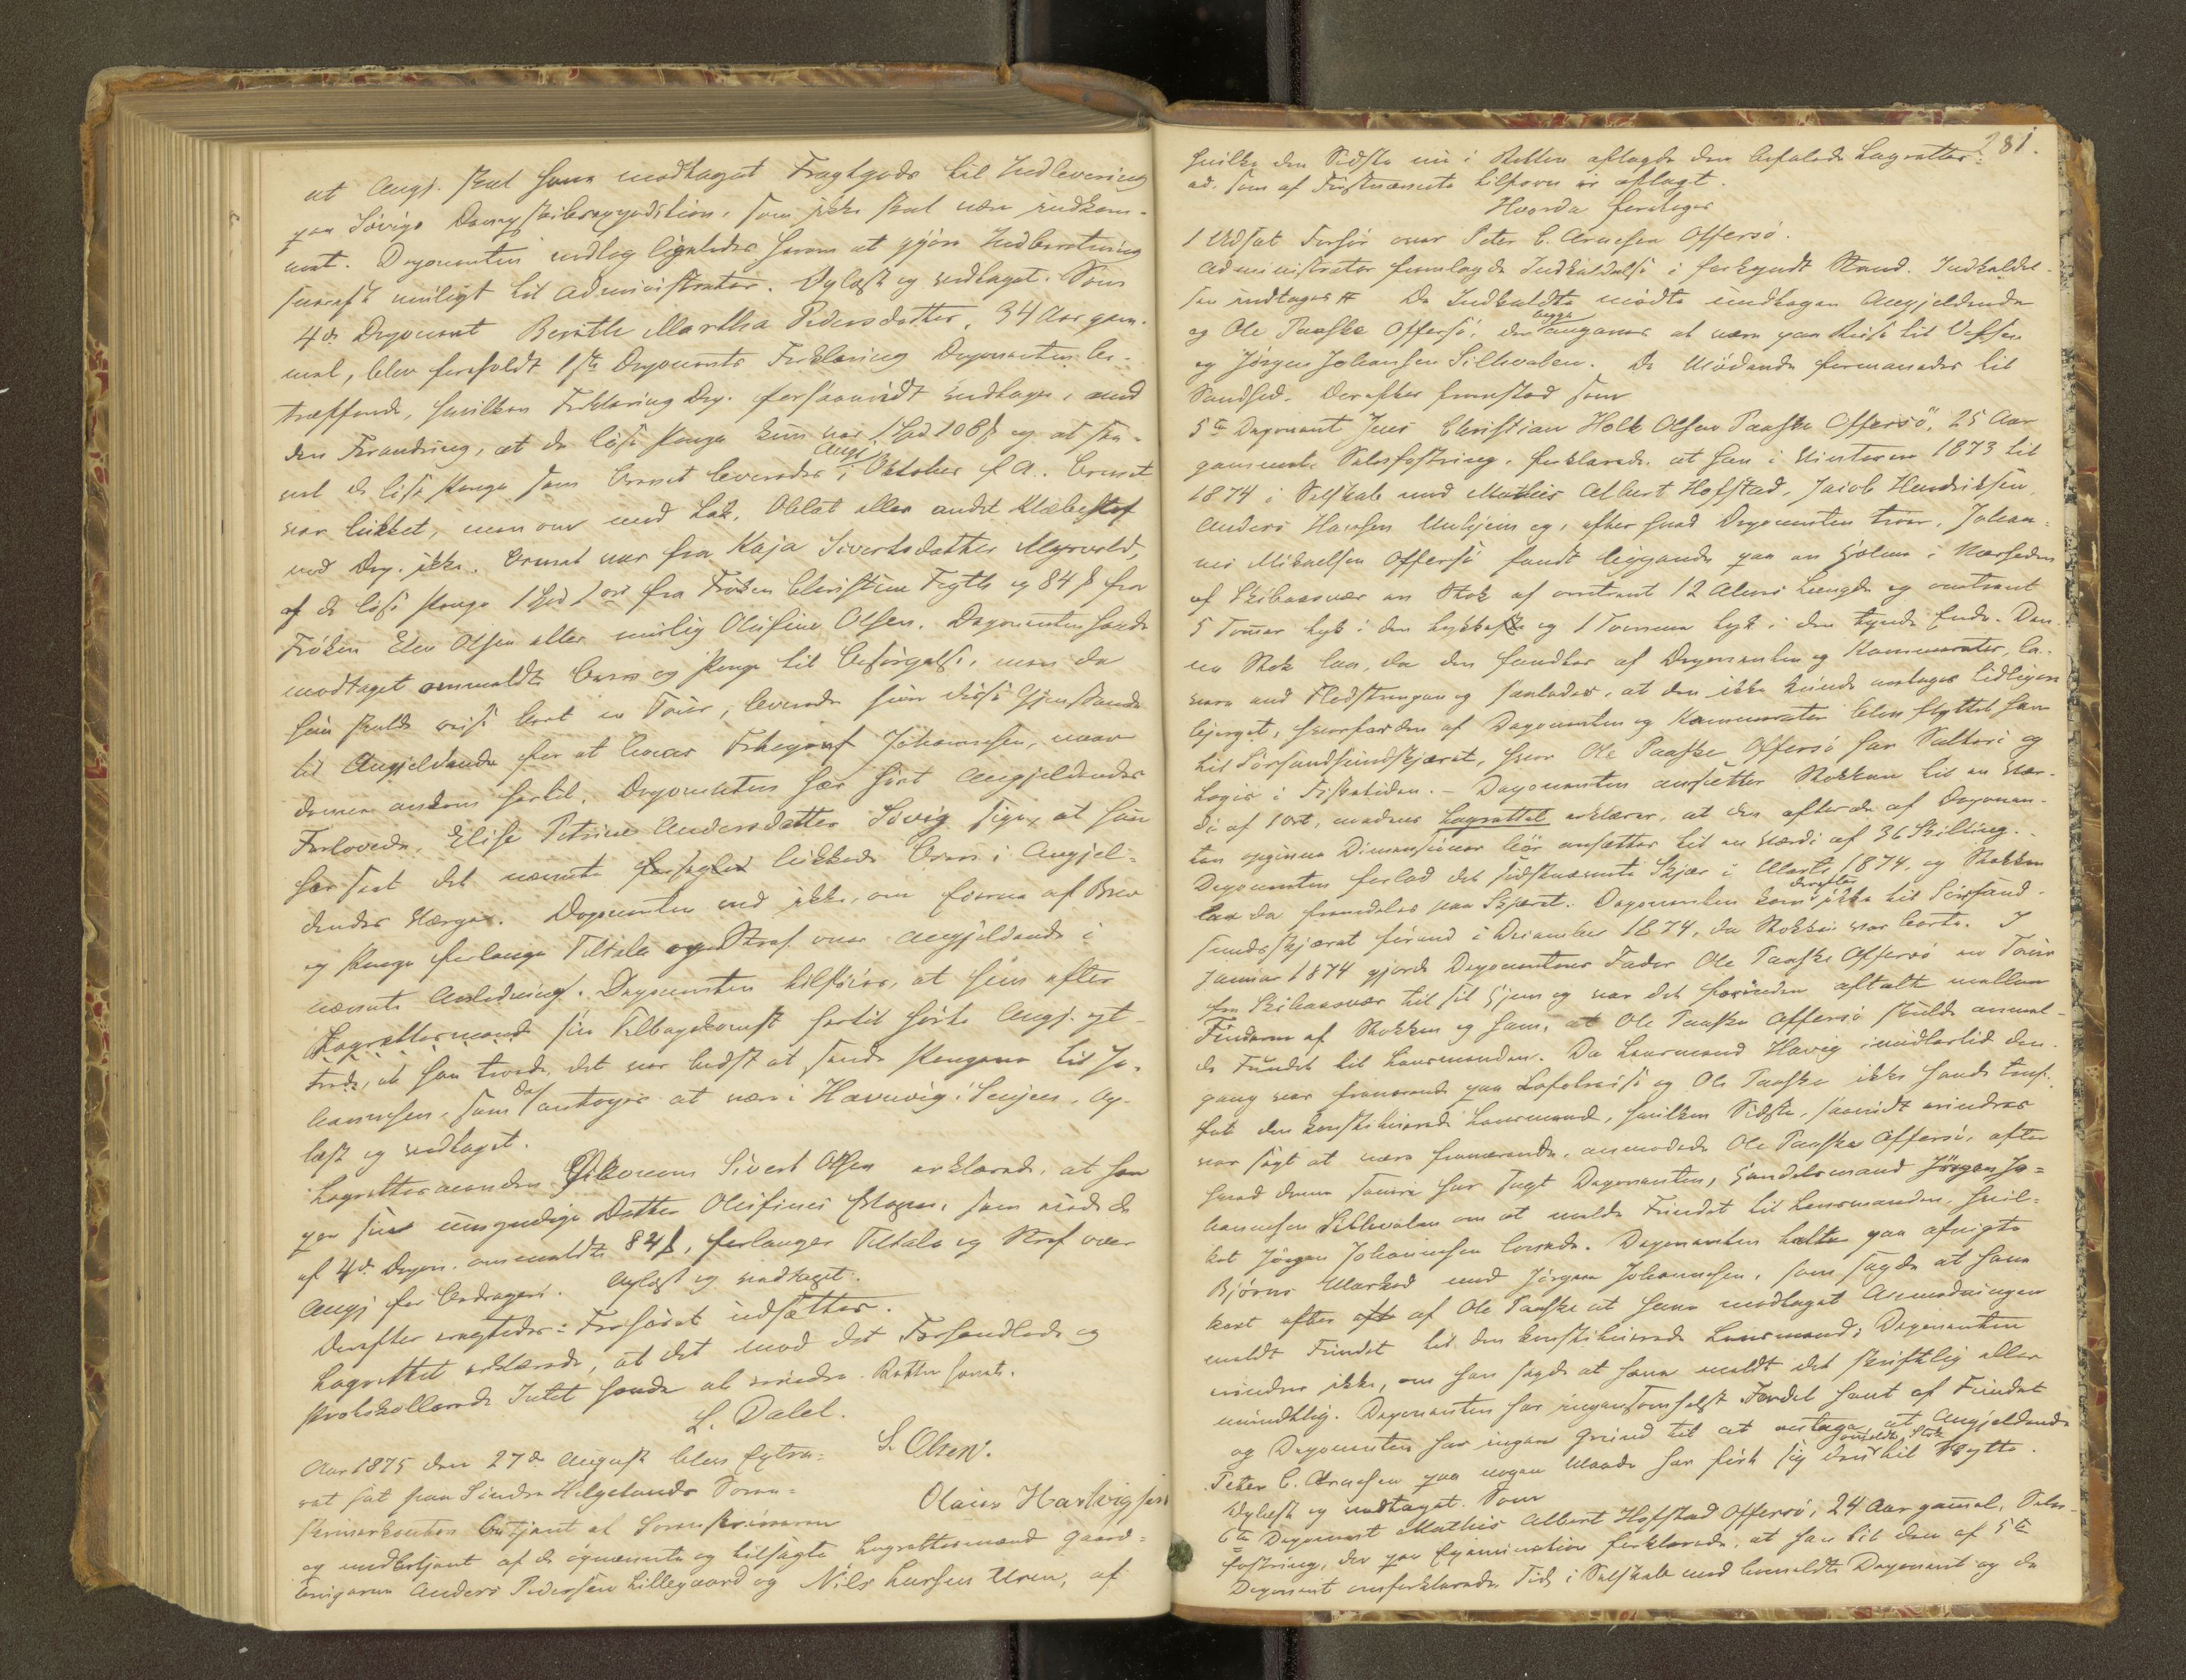 at Angj. skal have modtaget Fragtgods til Indlevering
paa Søvigs Dampskibsexpedition, som ikke skal være indkom-
met. Deponenten vedtog ligeledes herom at gjøre Indberetning
snarest muligt til Administrator. Oplæst og vedtaget. Som
4de Deponent Berith Martha Pedersdatter, 34 Aar gam-
mel, blev foreholdt 1ste Deponents Forklaring Deponenten be-
træffende, hvilken Forklaring Dep. forsaavidt vedtager, med
den Forandring, at de løse Penge kun var 1 Spd 108 ß og at saa-
vel de løse Penge som Brevet leveredes Angj. i Oktober f. A. Brevet
var lukket, men om med Lak, Oblat eller andet Klæbestof
ved Dep. ikke. Brevet var fra Kaja Sivertsdatter Myrvold,
af de løse Penge 1 Spd 1 ort fra Frøken Christine Fygth og 84 ß fra
Frøken Elen Olsen eller muelig Olufine Olsen. Deponenten havde
modtaget ommeldte Brev og Penge til Besørgelse, men da
hun skulde reise bort en Tour, leverede hun disse Gjenstande
til Angjeldende for at leveres Telegraf Johannesen, naar
denne ankom hertil. Deponenten har hørt Angjeldendes
Forlovede, Elise Petrine Andersdatter Søvig sige, at hun
har seet det nævnte forseglede lukkede Brev i Angjel-
dendes Værge. Deponenten ved ikke, om Eierne af Brev
og Penge forlange Tiltale og Straf over Angjeldende i
nævnte Anledning. Deponenten tilføier, at hun efter
Lagrettesmand sin Tilbagekomst hertil hørte Angj. yt-
trede, at han troede, det var bedst at sende Pengene til Jo-
hannesen, som da antages at være i Havnvig i Senjen. Op-
læst og vedtaget.
Lagrettesmanden Sivert Olsen erklærede, at han
paa sin umyndige Datter Olufines Vegne, som eiede de
af 4de Depon. ommeldte 84 ß, forlanger Tiltale og Straf over
Angj for Bedrageri. Oplæst og vedtaget.
Derefter vragtedes: Forhøret udsættes.
Lagrettet erklærede, at det mod det Forhandlede og
Protokollerede Intet havde at erindre. Retten hævet.
L. Dalel.
S. Olsen.
Olaius Hartvigsen
Aar 1875 den 27de August blev Extra-
ret sat paa Søndre Helgelands Soren-
skriverkontor betjent af Sorenskriveren
og medbetjent af de opnævnte og tilsagte Lagrettesmænd Gaard-
brugerne Anders Pedersen Lillegaard og Nils Larsen Uren, af
281.
hvilke den Sidste nu i Retten aflagde den befalede Lagrettes-
ed, som af Førstnævnte tilforn er aflagt.
Hvorda foretoges
1 Udsat Forhør over Peter C. Arnesen Offersø.
Administrator fremlagde Indkaldelse i forkyndt Stand. Indkaldel-
sen indtages # De Indkaldte mødte undtagen Angjeldende
og Ole Paaske Offersø, der begge angaves at være paa Reise til Vefsen
og Jørgen Johansen Silhvalen. De Mødende formanedes til
Sandhed. Derefter fremstod som
5te Deponent Jens Christian Holk Olsen Paaske Offersø, 25 Aar
gammel, Selvfostring, forklarede, at han i Vinteren 1873 til
1874 i Selskab med Mathis Albert Hofstad, Jacob Hendriksen
Anders Hansen Uthjem og, efter hvad Deponenten troer, Johan-
nes Mikaelsen Offersø fandt liggende paa en Holme i Nærheden
af Skibaasvær en Stok af omtrent 12 Alens Længde og omtrent
5 Tommer tyk i den tykkeste og 1 Tomme tyk i den tynde Ende. Den-
ne Stok laa, da den fandtes af Deponenten og Kammerater, la-
vere end Flodstrengen og saaledes, at den ikke kunde antages tidligere
bjerget, hvorfor den af Deponenten og Kammerater blev flyttet
til Sørsandsundskjæret, hvor Ole Paaske Offersø har Salteri og
Logis i Fisketiden. – Deponenten ansætter Stokken til en Vær-
di af 1 Ort, medens Lagrettet erklærer, at den efter de af Deponen-
ten opgivne Dimensioner bør ansættes til en Værdi af 36 Skilling.
Deponenten forlod det sidstnævnte Skjær i Marts 1874, og Stokken
laa da fremdeles paa Skjæret. Deponenten kom derefter ikke til Sørsand-
sundskjæret førend i December 1874, da Stokken var borte. I
Januar 1874 gjorde Deponentens Fader Ole Paaske Offersø en Tour
fra Skibaasvær til sit Hjem og var det forinden aftalt mellem
Finderne af Stokken og ham, at Ole Paaske Offersø skulde anmel-
de Fundet til Lensmanden. Da Lensmand Havig imidlertid den-
gang var fraværende paa Lofotreise og Ole Paaske ikke havde truf-
fet den konstituerede Lensmand, hvilken Sidste, saavidt erindres
var sagt at være fraværende, anmodede Ole Paaske Offersø, efter
hvad denne senere har sagt Deponenten, Handelsmand Jørgen Jo-
hannesen Silhvalen om at melde Fundet til Lensmanden, hvil-
ket Jørgen Johannesen lovede. Deponenten talte paa afvigte
Bjørns Marked med Jørgen Johannesen, som sagde at have
kort efter af Ole Paaske at have modtaget Anmodningen
meldt Fundet til den konstituerede Lensmand; Deponenten
erindrer ikke, om han sagde at have meldt det skriftlig eller
mundtlig. Deponenten har ingensomhelst Fordel havt af Fundet
og Deponenten har ingen Grund til at antage, at Angjeldende
Peter C. Arnesen paa nogen Maade har ført sig den omældte Stok til Nytte.
Oplæst og vedtaget. Som
6te Deponent Mathis Albert Hofstad Offersø, 24 Aar gammel, Selv-
fostring, der paa Examination forklarede, at han til den af 5te
Deponent omforklarede Tid i Selskab med bemeldte Deponent og de